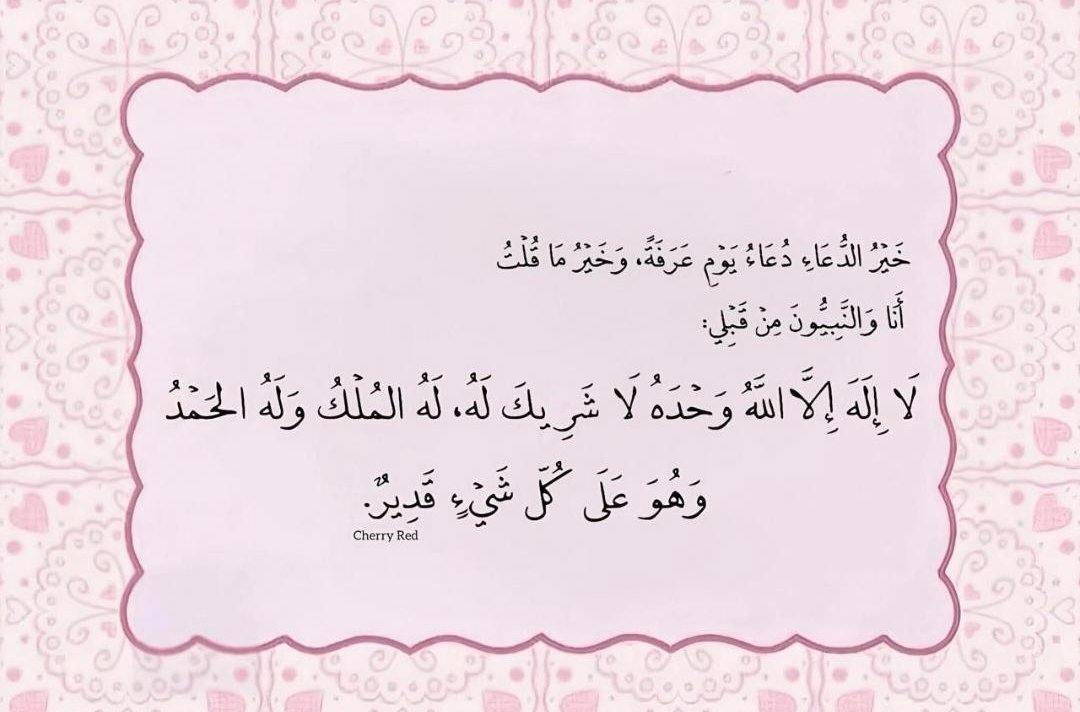 خَيْرُ الدُّعَاءِ دُعَاءُ يَوْمِ عَرَفَةَ، وَخَيْرُ مَا قُلْتُ
أَنَا وَالنَّبِيُّونَ مِنْ قَبْلِي:
لَا إِلَهَ إِلَّا اللَّهُ وَحْدَهُ لَا شَرِيكَ لَهُ، لَهُ المُلْكُ وَلَهُ الحَمْدُ
وَهُوَ عَلَى كُلِّ شَيْءٍ قَدِيرٌ.
Cherry Red